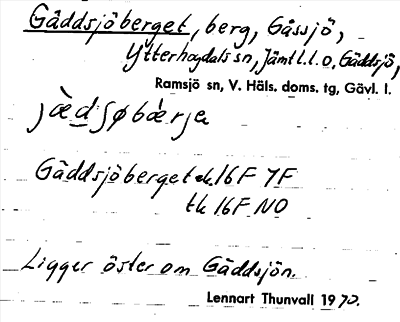 Gäddsjöberget, berg, Gåssjö,
Ytterhogdals sn, Jämtl. l. o. Gäddsjö,
Ramsjö sn, V. Häls. doms. tg, Gävl. l.
Gäddsjöberget ek. 16F 7F
tk 16F NO
Ligger öster om Gäddsjön.
Lennart Thunvall 1970.